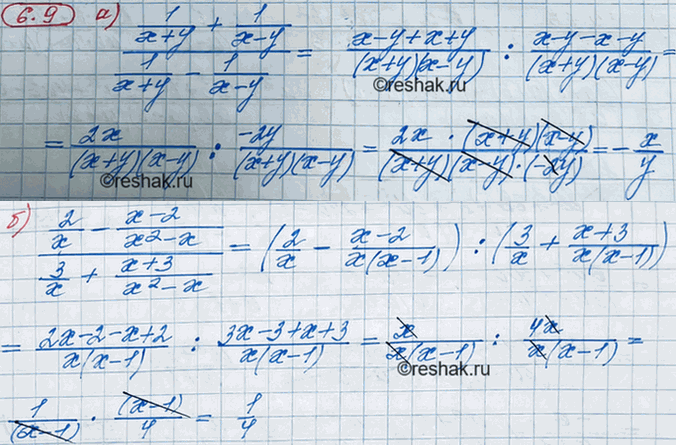 6.9 а) (1/(x+y) + 1/(x-y)) / (1/(x+y) - 1/(x-y)) = (x-y+x+y)/((x+y)(x-y)) : (x-y-x-y)/((x+y)(x-y)) =
©reshak.ru
= 2x/((x+y)(x-y)) : -2y/((x+y)(x-y)) = 2x·(x+y)(x-y)/((x+y)(x-y)·(-2y)) = -x/y
©reshak.ru
б) (2/x - (x-2)/(x²-x)) / (3/x + (x+3)/(x²-x)) = (2/x - (x-2)/(x(x-1))) : (3/x + (x+3)/(x(x-1)))
= (2x-2-x+2)/(x(x-1)) : (3x-3+x+3)/(x(x-1)) = x/(x(x-1)) : 4x/(x(x-1)) =
©reshak.ru
1/(x-1) · (x-1)/4 = 1/4